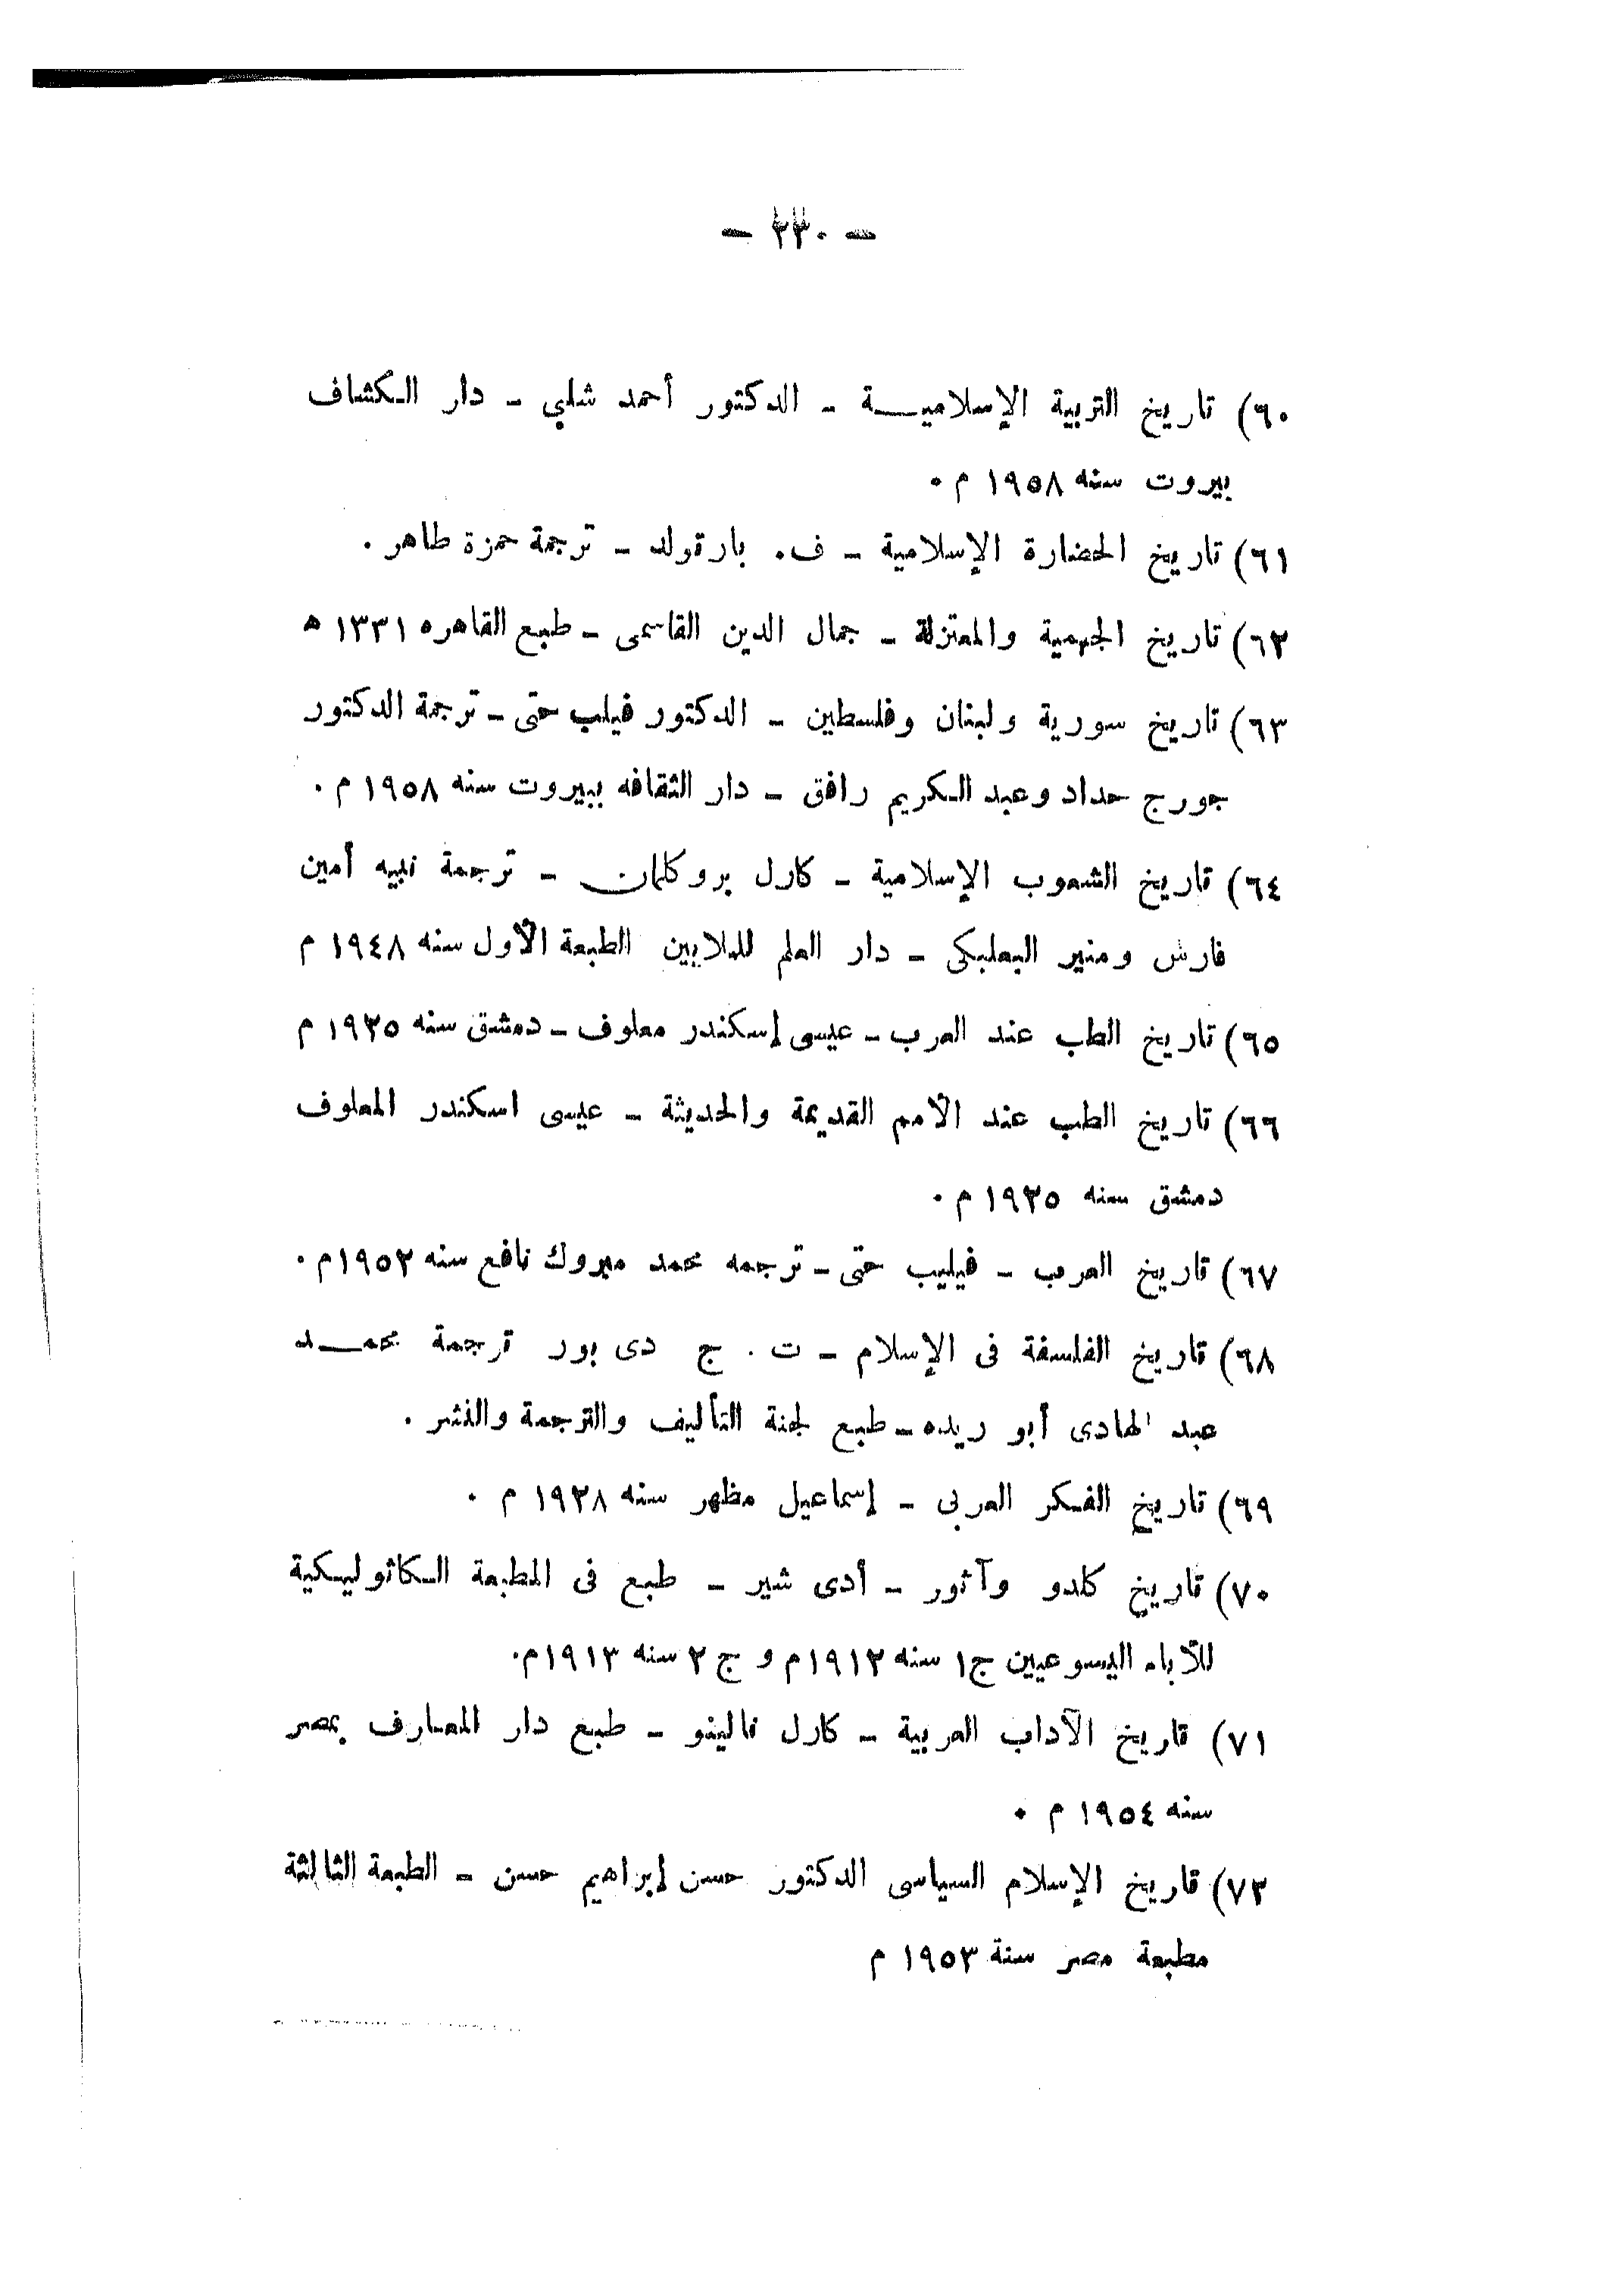 - ٢٣٠ -
٦٠) تاريخ التربية الإسلاميــة - الدكتور أحمد شلبي - دار الكشاف
بيروت سنه ١٩٥٨ م .
٦١) تاريخ الحضارة الإسلامية - ف. بارتولد - ترجمة حمزة طاهر .
٦٢) تاريخ الجهمية والمعتزلة - جمال الدين القاسمى - طبع القاهره ١٣٣١ ه
٦٣) تاريخ سورية ولبنان وفلسطين - الدكتور فيلب حتى - ترجمة الدكتور
جورج حداد وعبد الكريم رافق - دار الثقافه ببيروت سنه ١٩٥٨ م .
٦٤) تاريخ الشعوب الإسلامية - كارل بروكلمان - ترجمة نبيه أمين
فارس ومنير البعلبكى - دار العلم للملايين الطبعة الأول سنه ١٩٤٨ م
٦٥) تاريخ الطب عند العرب - عيسى إسكندر معلوف - دمشق سنه ١٩٢٥ م
٦٦) تاريخ الطب عند الأمم القديمة والحديثة - عيسى اسكندر المعلوف
دمشق سنه ١٩٢٥ م .
٦٧) تاريخ العرب - فيليب حتى - ترجمه محمد مبروك نافع سنه ١٩٥٢م .
٦٨) تاريخ الفلسفة فى الإسلام - ت . ج دى بور ترجمة محمــد
عبد الهادى أبو ريده - طبع لجنة التأليف والترجمة والنشر .
٦٩) تاريخ الفكر العربى - إسماعيل مظهر سنه ١٩٢٨ م .
٧٠) تاريخ كلدو وآثور - أدى شير - طبع فى المطبعة الكاثوليكية
للآباء اليسوعيين ج١ سنه ١٩١٢م و ج ٢ سنه ١٩١٣م.
٧١) تاريخ الآداب العربية - كارل نالينو - طبع دار المعارف بمصر
سنه ١٩٥٤ م .
٧٢) تاريخ الإسلام السياسى الدكتور حسن إبراهيم حسن - الطبعة الثالثة
مطبعة مصر سنة ١٩٥٣ م